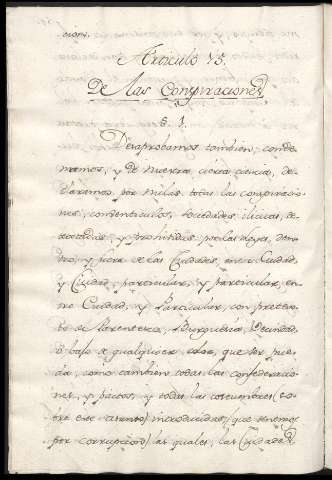 cion.
Articulo 15.
De las Conspiraciones
§. 1.
Desaprobamos tambien, conde-
namos, y de nuestra cierta ciencia, de-
claramos por nulas, todas las conspiracio-
nes, conventiculos, sociedades ilicitas, de-
testadas, y prohibidas por las Leyes, den-
tro, y fuera de las Ciudades, entre Ciudad,
y Ciudad, particular, y particular, en-
tre Ciudad, y Particular, con pretex-
to de Parentesco, Burguesia, Vecindad,
ò bajo de qualquier color, que ser pue-
da, como tambien todas las confederacio-
nes, y pactos, y todas las costumbres (so-
bre este asunto) introducidas, (que tenemos
por corrupcion) las quales, las Ciudades,